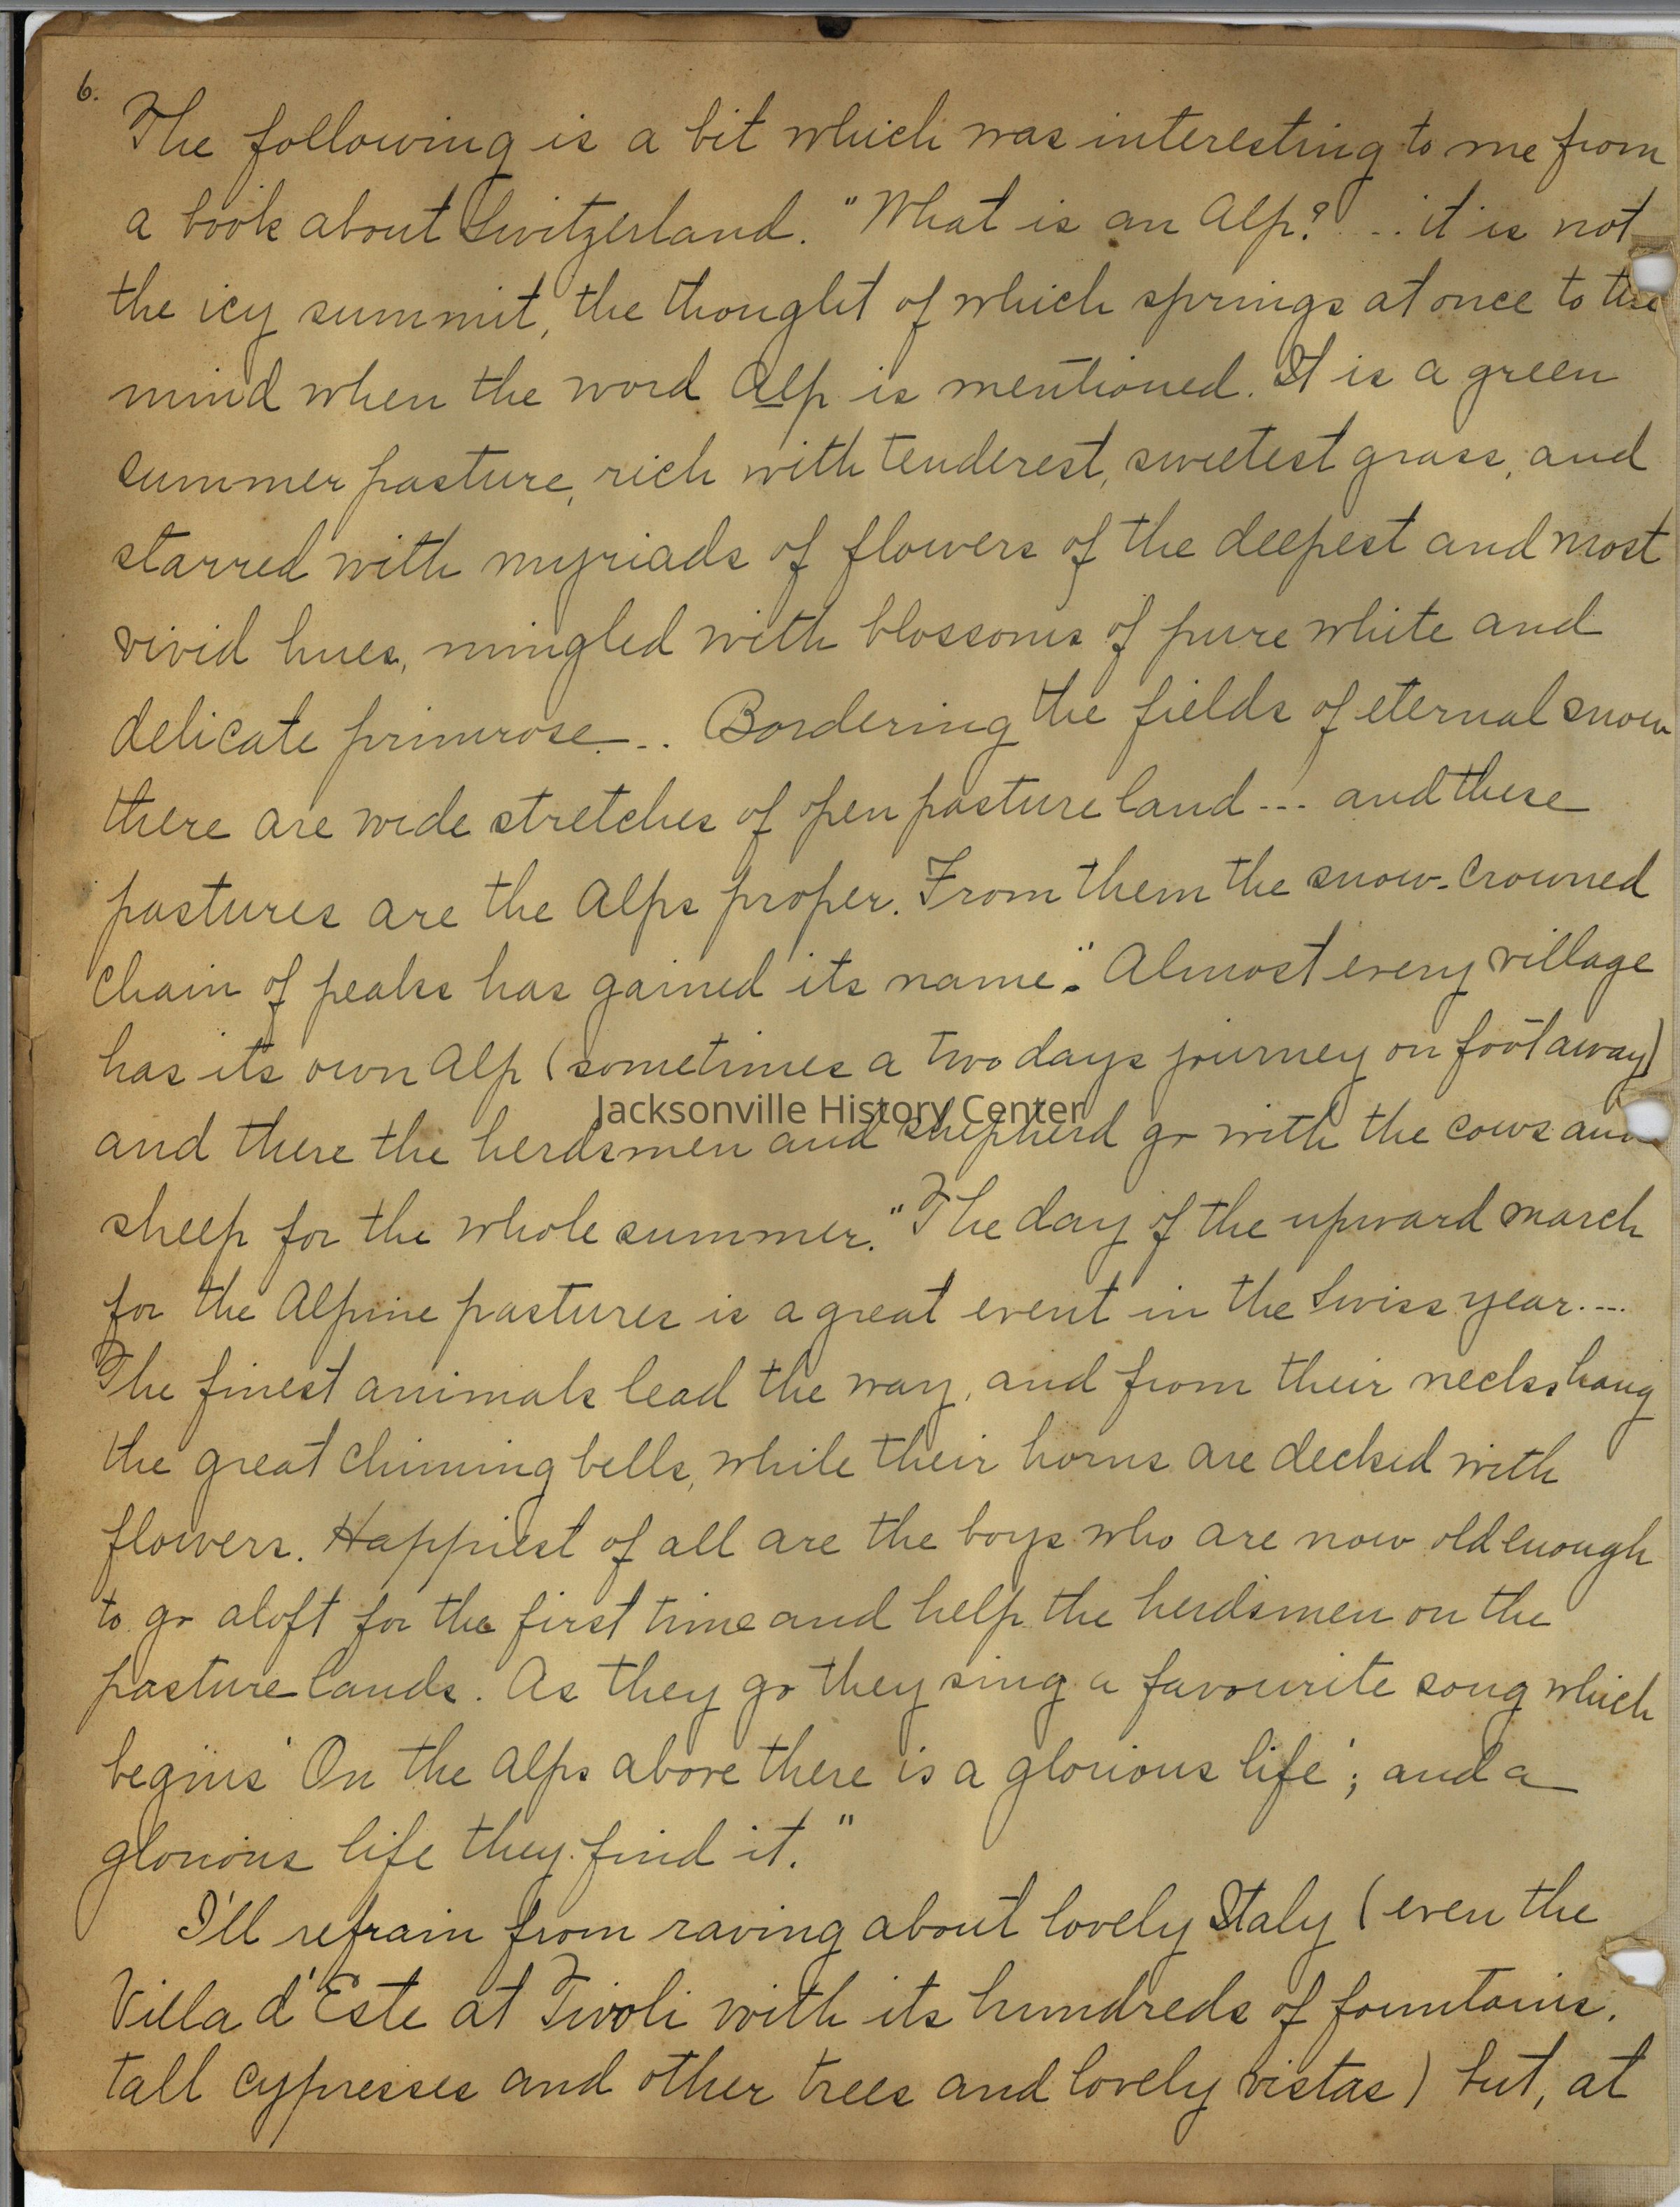 6.
The following is a bit which was interesting to me from
a book about Switzerland. "What is an Alp? ... it is not
the icy summit, the thought of which springs at once to the
mind when the word Alp is mentioned. It is a green
summer pasture, rich with tenderest, sweetest grass, and
starred with myriads of flowers of the deepest and most
vivid hues, mingled with blossoms of pure white and
delicate primrose... Bordering the fields of eternal snow
there are wide stretches of open pasture land --- and these
pastures are the Alps proper. From them the snow-crowned
chain of peaks has gained its name." Almost every village
has its own Alp (sometimes a two days journey on foot away)
Jacksonville History Center
and there the herdsmen and shepherd go with the cows and
sheep for the whole summer. "The day of the upward march
for the Alpine pastures is a great event in the Swiss year....
The finest animals lead the way, and from their necks hang
the great chiming bells, while their horns are decked with
flowers. Happiest of all are the boys who are now old enough
to go aloft for the first time and help the herdsmen on the
pasture lands. As they go they sing a favourite song which
begins 'On the Alps above there is a glorious life'; and a
glorious life they find it."
I'll refrain from raving about lovely Italy (even the
Villa d'Este at Tivoli with its hundreds of fountains,
tall cypresses and other trees and lovely vistas) but, at